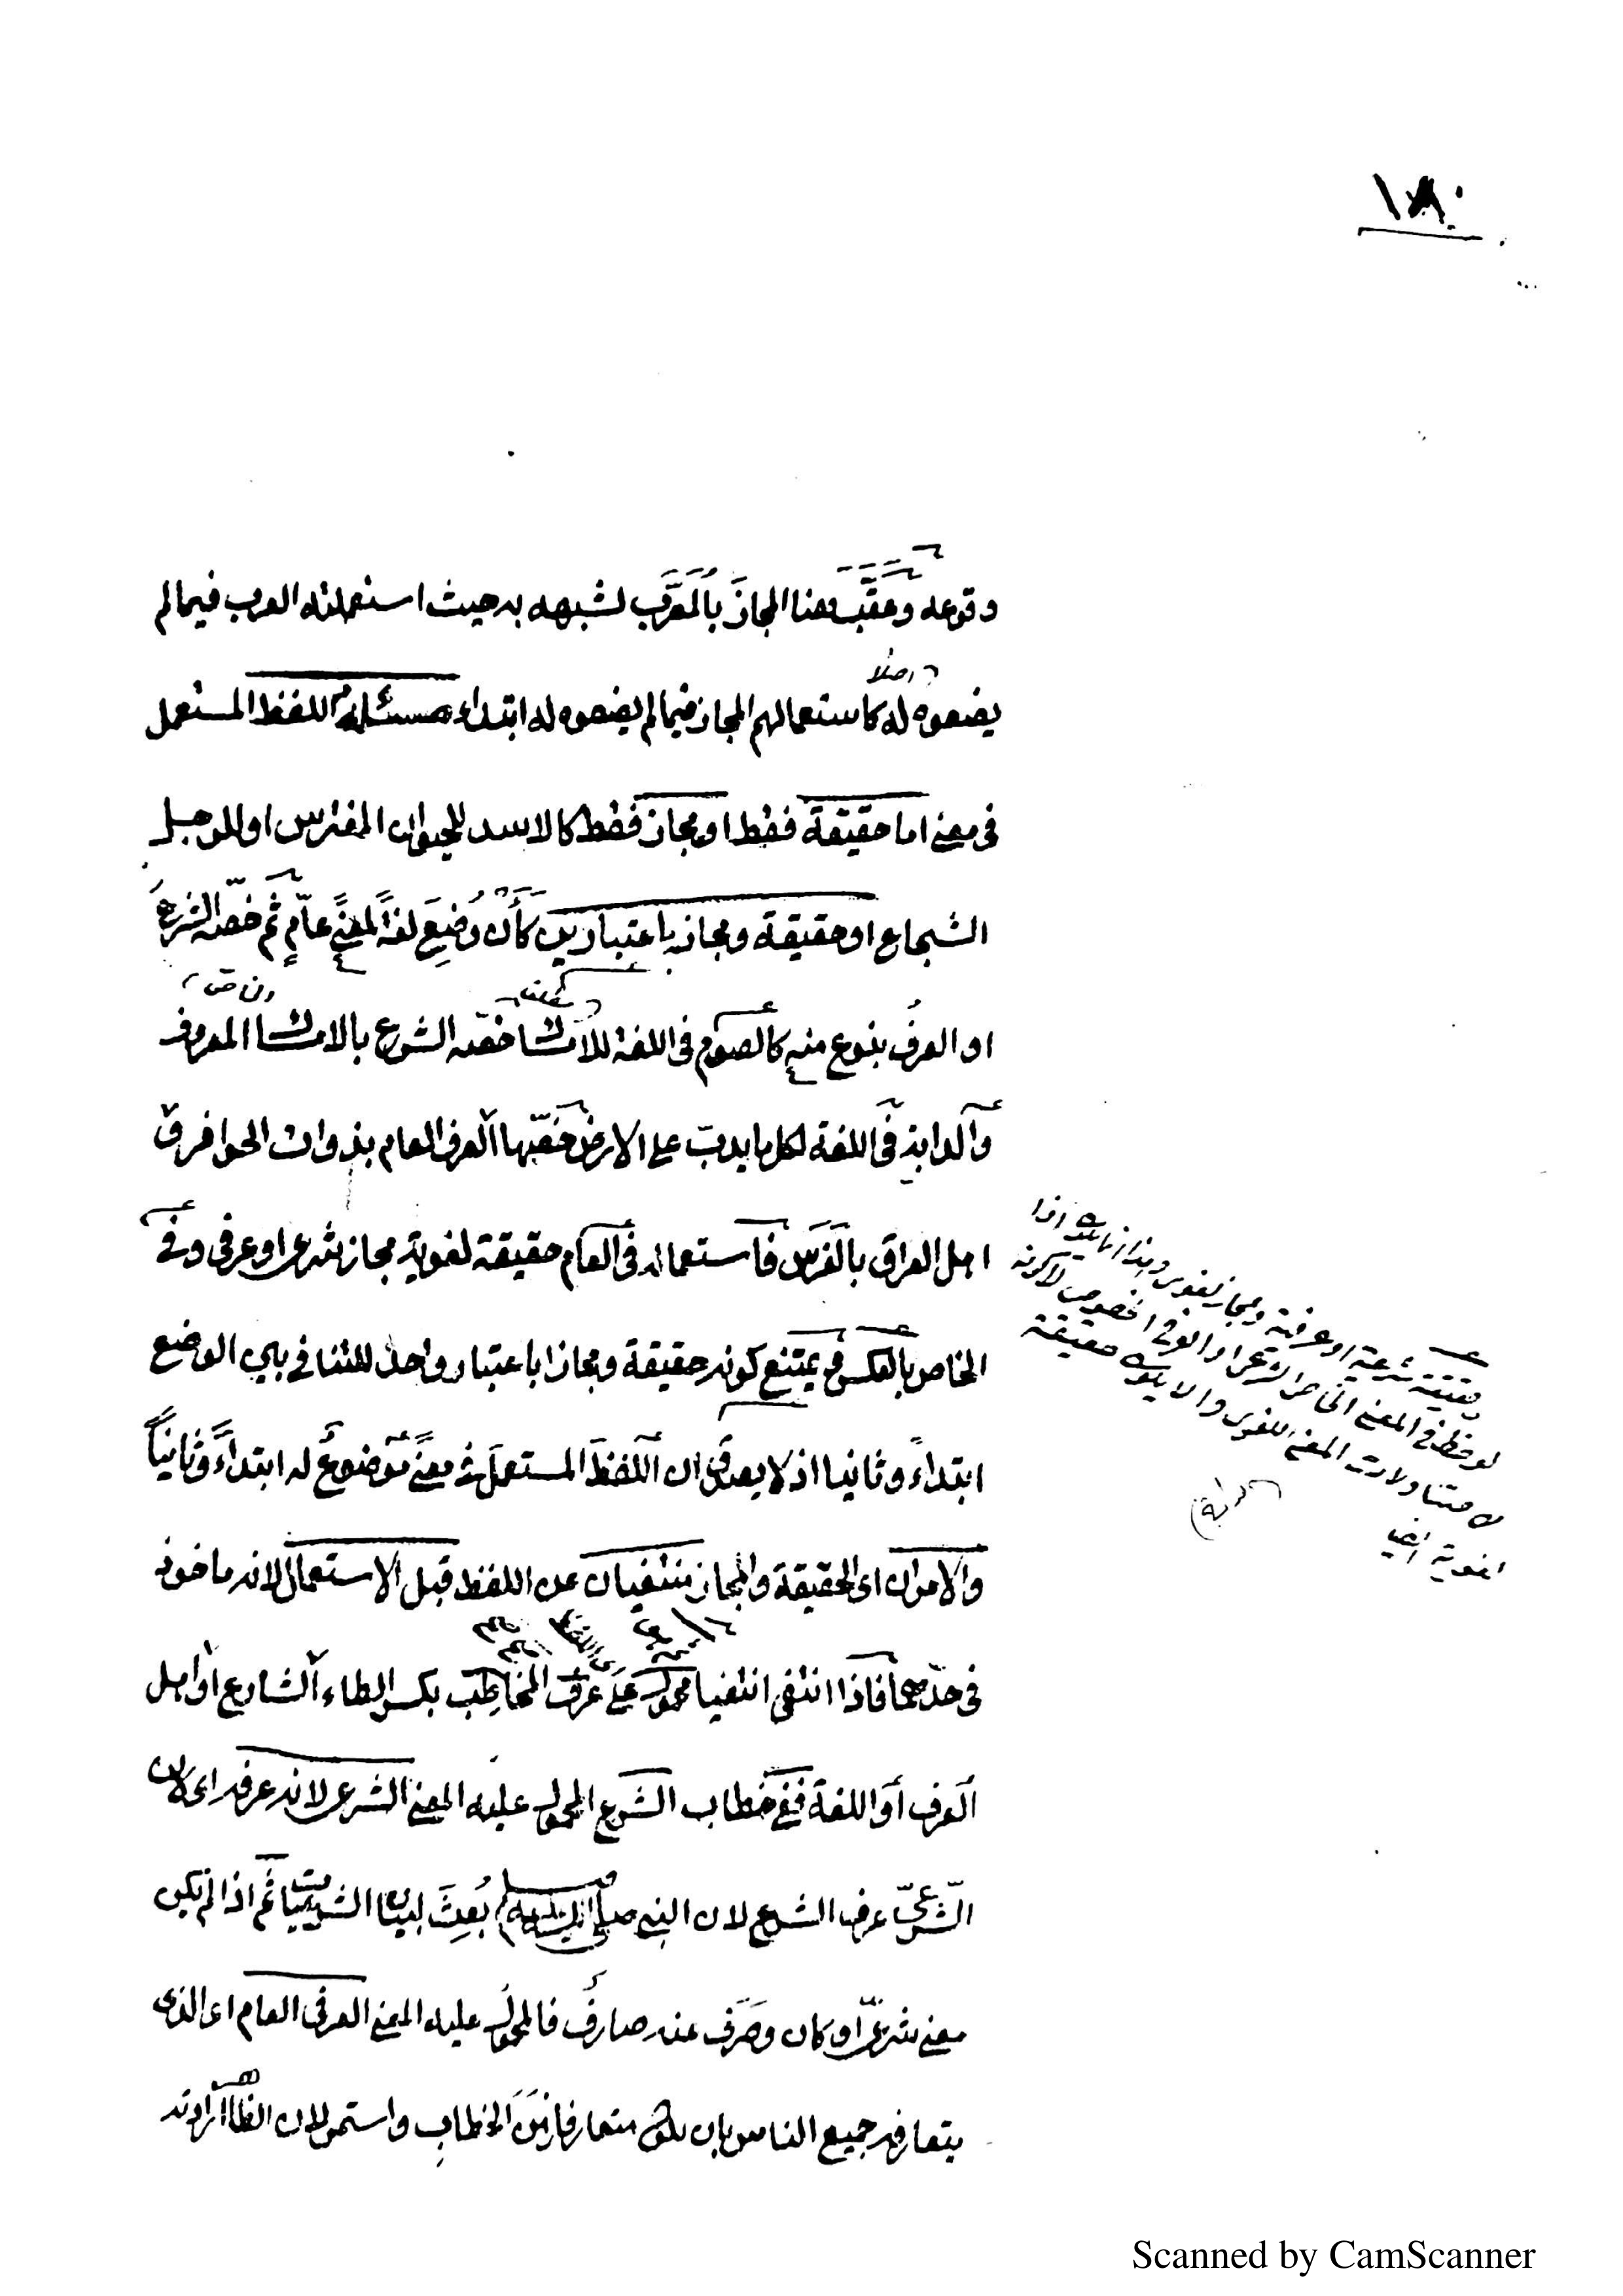 ١٨٠
وقوعه وعقّب هنا المجازَ بالمعَرَّب لشبهه به حيث استعملته العرب فيما لم
اصلا
يضعوه له كاستعمالهم المجاز فيما لم يضعوه له ابتداء مسئلة اللفظ المستعمل
فى معنى اما حقيقة فقط او مجاز فقط كالاسد للحيوان المفترس او للرجل
الشجاع او حقيقة ومجاز باعتبارين كَأَنْ وُضِعَ لغةً لمعنًى عامٍّ ثم خصّه الشرعُ
او العرفُ بنوع منه كالصوم فى اللغة للامساك خصّه الشرع بالامساك المعروف
والدابة فى اللغة لكل ما يدبّ على الارض خصّها العرف العام بذوات الحوافر و
اهل العراق بالفَرَس فاستعماله فى العام حقيقة لغوية مجاز شرعى او عرفى وفى
الخاص بالعكس ويمتنع كونه حقيقة ومجازا باعتبار واحد للتنافى بين الوضع
ابتداءً وثانيا اذ لا يصدق ان اللفظَ المستعمل فى معنًى موضوعٌ له ابتداءً وثانياً
والامران اى الحقيقة والمجاز منتفيان عن اللفظ قبل الاستعمال لانه ماخوذ
فى حدّهما فاذا انتفى انتفيا محمولٌ على عرف المخاطِب بكسر الطاء الشارع او اهل
العرف او اللغة ففى خطاب الشرع المحمول عليه المعنى الشرعى لانه عرفه اى لان
الشرعىّ عرف الشرع لان النبى صلى الله عليه وسلم بُعِثَ لبيان الشرعيات ثم اذا لم يكن
معنى شرعىّ او كان وصَرَف عنه صارفٌ فالمحمول عليه المعنى العرفى العام اى الذى
يتعارفه جميع الناس بان يكون متعارفا زمَنَ الخطابِ واستمر لان الظاهر ارادته
حقيقة شرعية او عرفية ومجاز لغوى وهذا انما يكون اذا
لوحظ فى المعنى الخاص الشرعى او العرفى الخصوص لا كونه
من متناولات المعنى اللغوى والا يكون حقيقة
لغوية ايضا